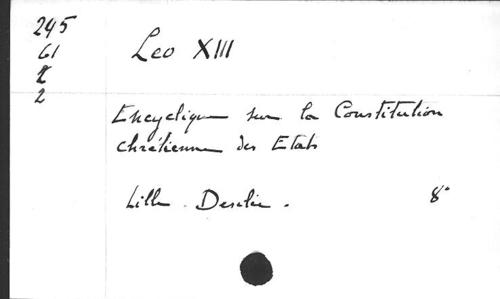 245
61
2
2
Leo XIII
Encyclique sur la Constitution
chrétienne des Etats
Lille. Desclée.
8°